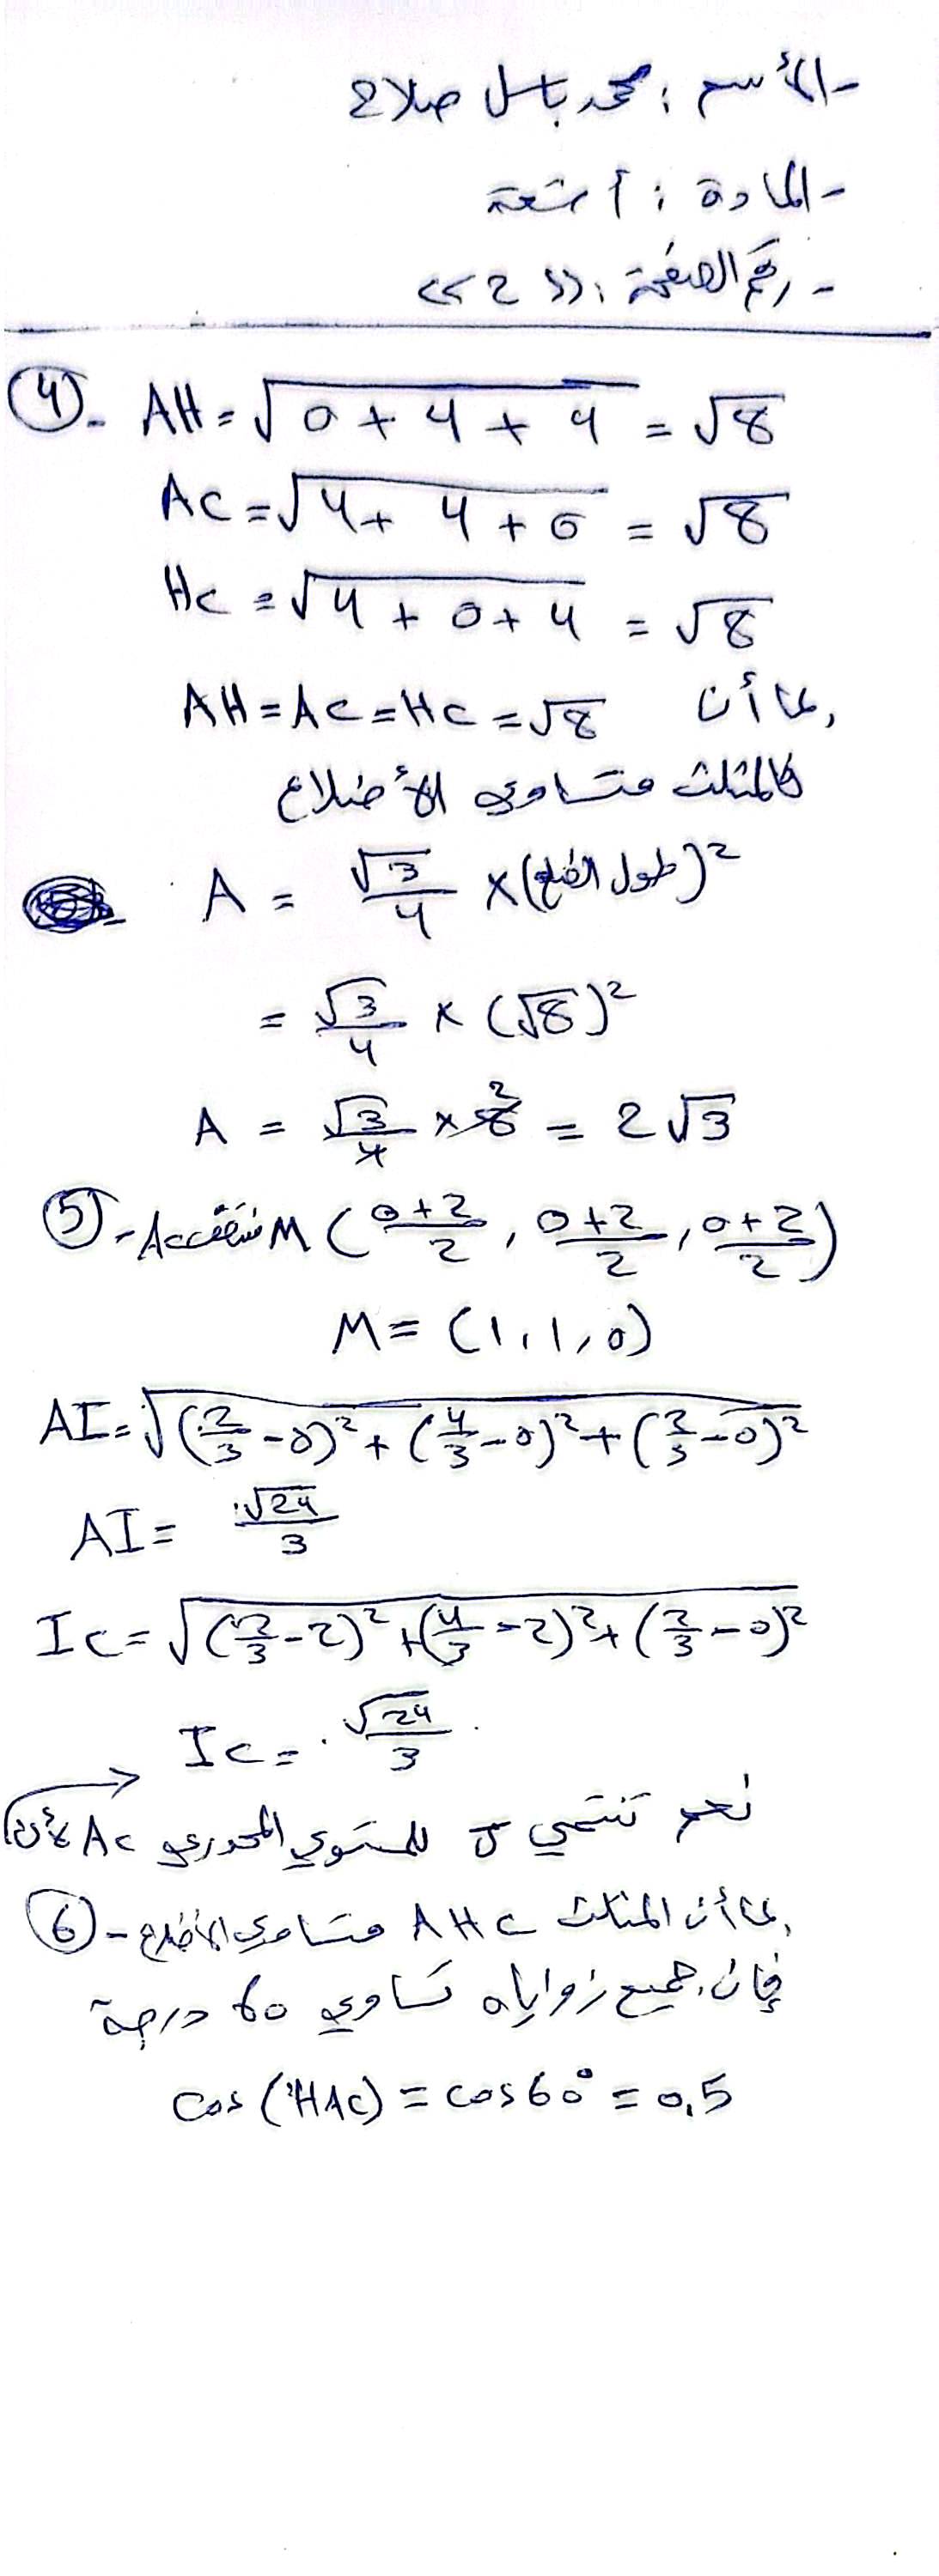 - الأسم : محمد باسل صلاح
- المادة : أشعة
- رقم الصفحة : << 2 >>
④- AH = √(0 + 4 + 4) = √8
AC = √(4 + 4 + 0) = √8
HC = √(4 + 0 + 4) = √8
بما أن AH = AC = HC = √8
فالمثلث متساوي الأضلاع
A = √3/4 × (طول الضلع)²
= √3/4 × (√8)²
A = √3/4 × 8 2 = 2√3
⑤- منتصف AC M (0+2/2 , 0+2/2 , 0+2/2)
M = (1, 1, 0)
AI = √((2/3 - 0)² + (4/3 - 0)² + (2/3 - 0)²)
AI = √24/3
IC = √((2/3 - 2)² + (4/3 - 2)² + (2/3 - 0)²)
IC = √24/3
نعم تنتمي I للمستوي المحوري AC لأن
⑥- بما أن المثلث AHC متساوي الأضلاع
فإن جميع زواياه تساوي 60 درجة
cos (HAC) = cos 60° = 0,5